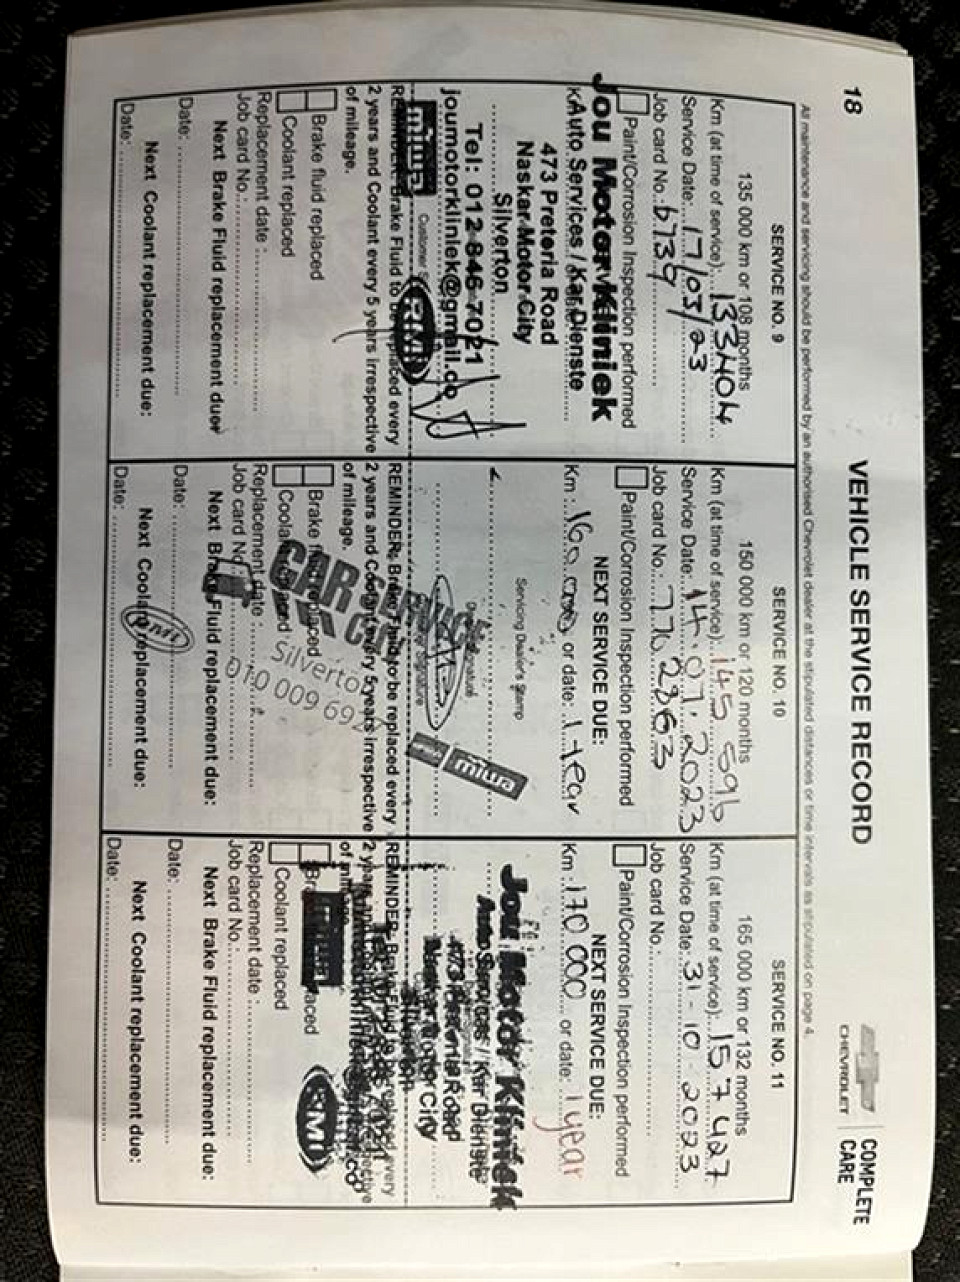 18
VEHICLE SERVICE RECORD
CHEVROLET
COMPLETE
CARE
All maintenance and servicing should be performed by an authorised Chevrolet dealer at the stipulated distances or time intervals as stipulated on page 4.
SERVICE NO. 9
135 000 km or 108 months
Km (at time of service): 133404
Service Date: 17/03/23
Job card No. 6739
Paint/Corrosion Inspection performed
Jou Motor Kliniek
Auto Services / Kar Dienste
473 Pretoria Road
Naskar Motor City
Silverton
Tel: 012 846 7021
joumotorkliniek@gmail.co
miwa
RMI
REMINDER: Brake Fluid to be replaced every
2 years and Coolant every 5 years irrespective
of mileage.
Brake fluid replaced
Coolant replaced
Replacement date :
Job card No.:
Next Brake Fluid replacement due:
Date:
Next Coolant replacement due:
Date:
SERVICE NO. 10
150 000 km or 120 months
Km (at time of service): 145 896
Service Date: 14.07.2023
Job card No.: 77022863
Paint/Corrosion Inspection performed
NEXT SERVICE DUE:
Km : 160 000 or date: 1 year
Servicing Dealer's Stamp
miwa
CAR SERVICE
Silverton
010 009 692
REMINDER: Brake Fluid to be replaced every
2 years and Coolant every 5 years irrespective
of mileage.
Brake fluid replaced
Coolant replaced
Replacement date :
Job card No.
Next Brake Fluid replacement due:
Date:
Next Coolant replacement due:
RMI
Date:
SERVICE NO. 11
165 000 km or 132 months
Km (at time of service): 157427
Service Date: 31-10-2023
Job card No.:
Paint/Corrosion Inspection performed
NEXT SERVICE DUE:
Km : 170 000 or date: 1 year
Jou Motor Kliniek
Auto Services / Kar Dienste
473 Pretoria Road
Naskar Motor City
Silverton
miwa
RMI
REMINDER: Brake Fluid to be replaced every
2 years
of mileage.
Coolant replaced
Replacement date :
Job card No.:
Next Brake Fluid replacement due:
Date:
Next Coolant replacement due:
Date: